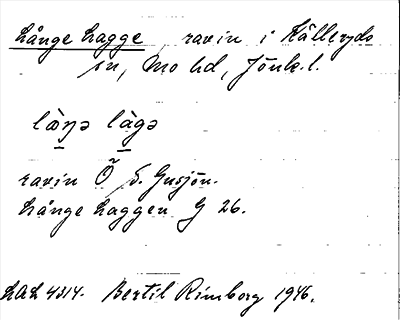 Långe Lagge, ravin i Källeryds
sn, Mo hd, Jönk.l.
làŋə làgə
ravin Ö S. Gusjön.
Långe Laggen G 26.
LAL 4314. Bertil Rimborg 1946.